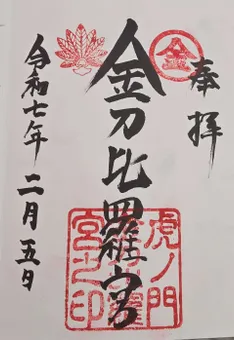 奉拝
金
金刀比羅宮
虎ノ門
金刀比羅
宮之印
令和七年二月五日